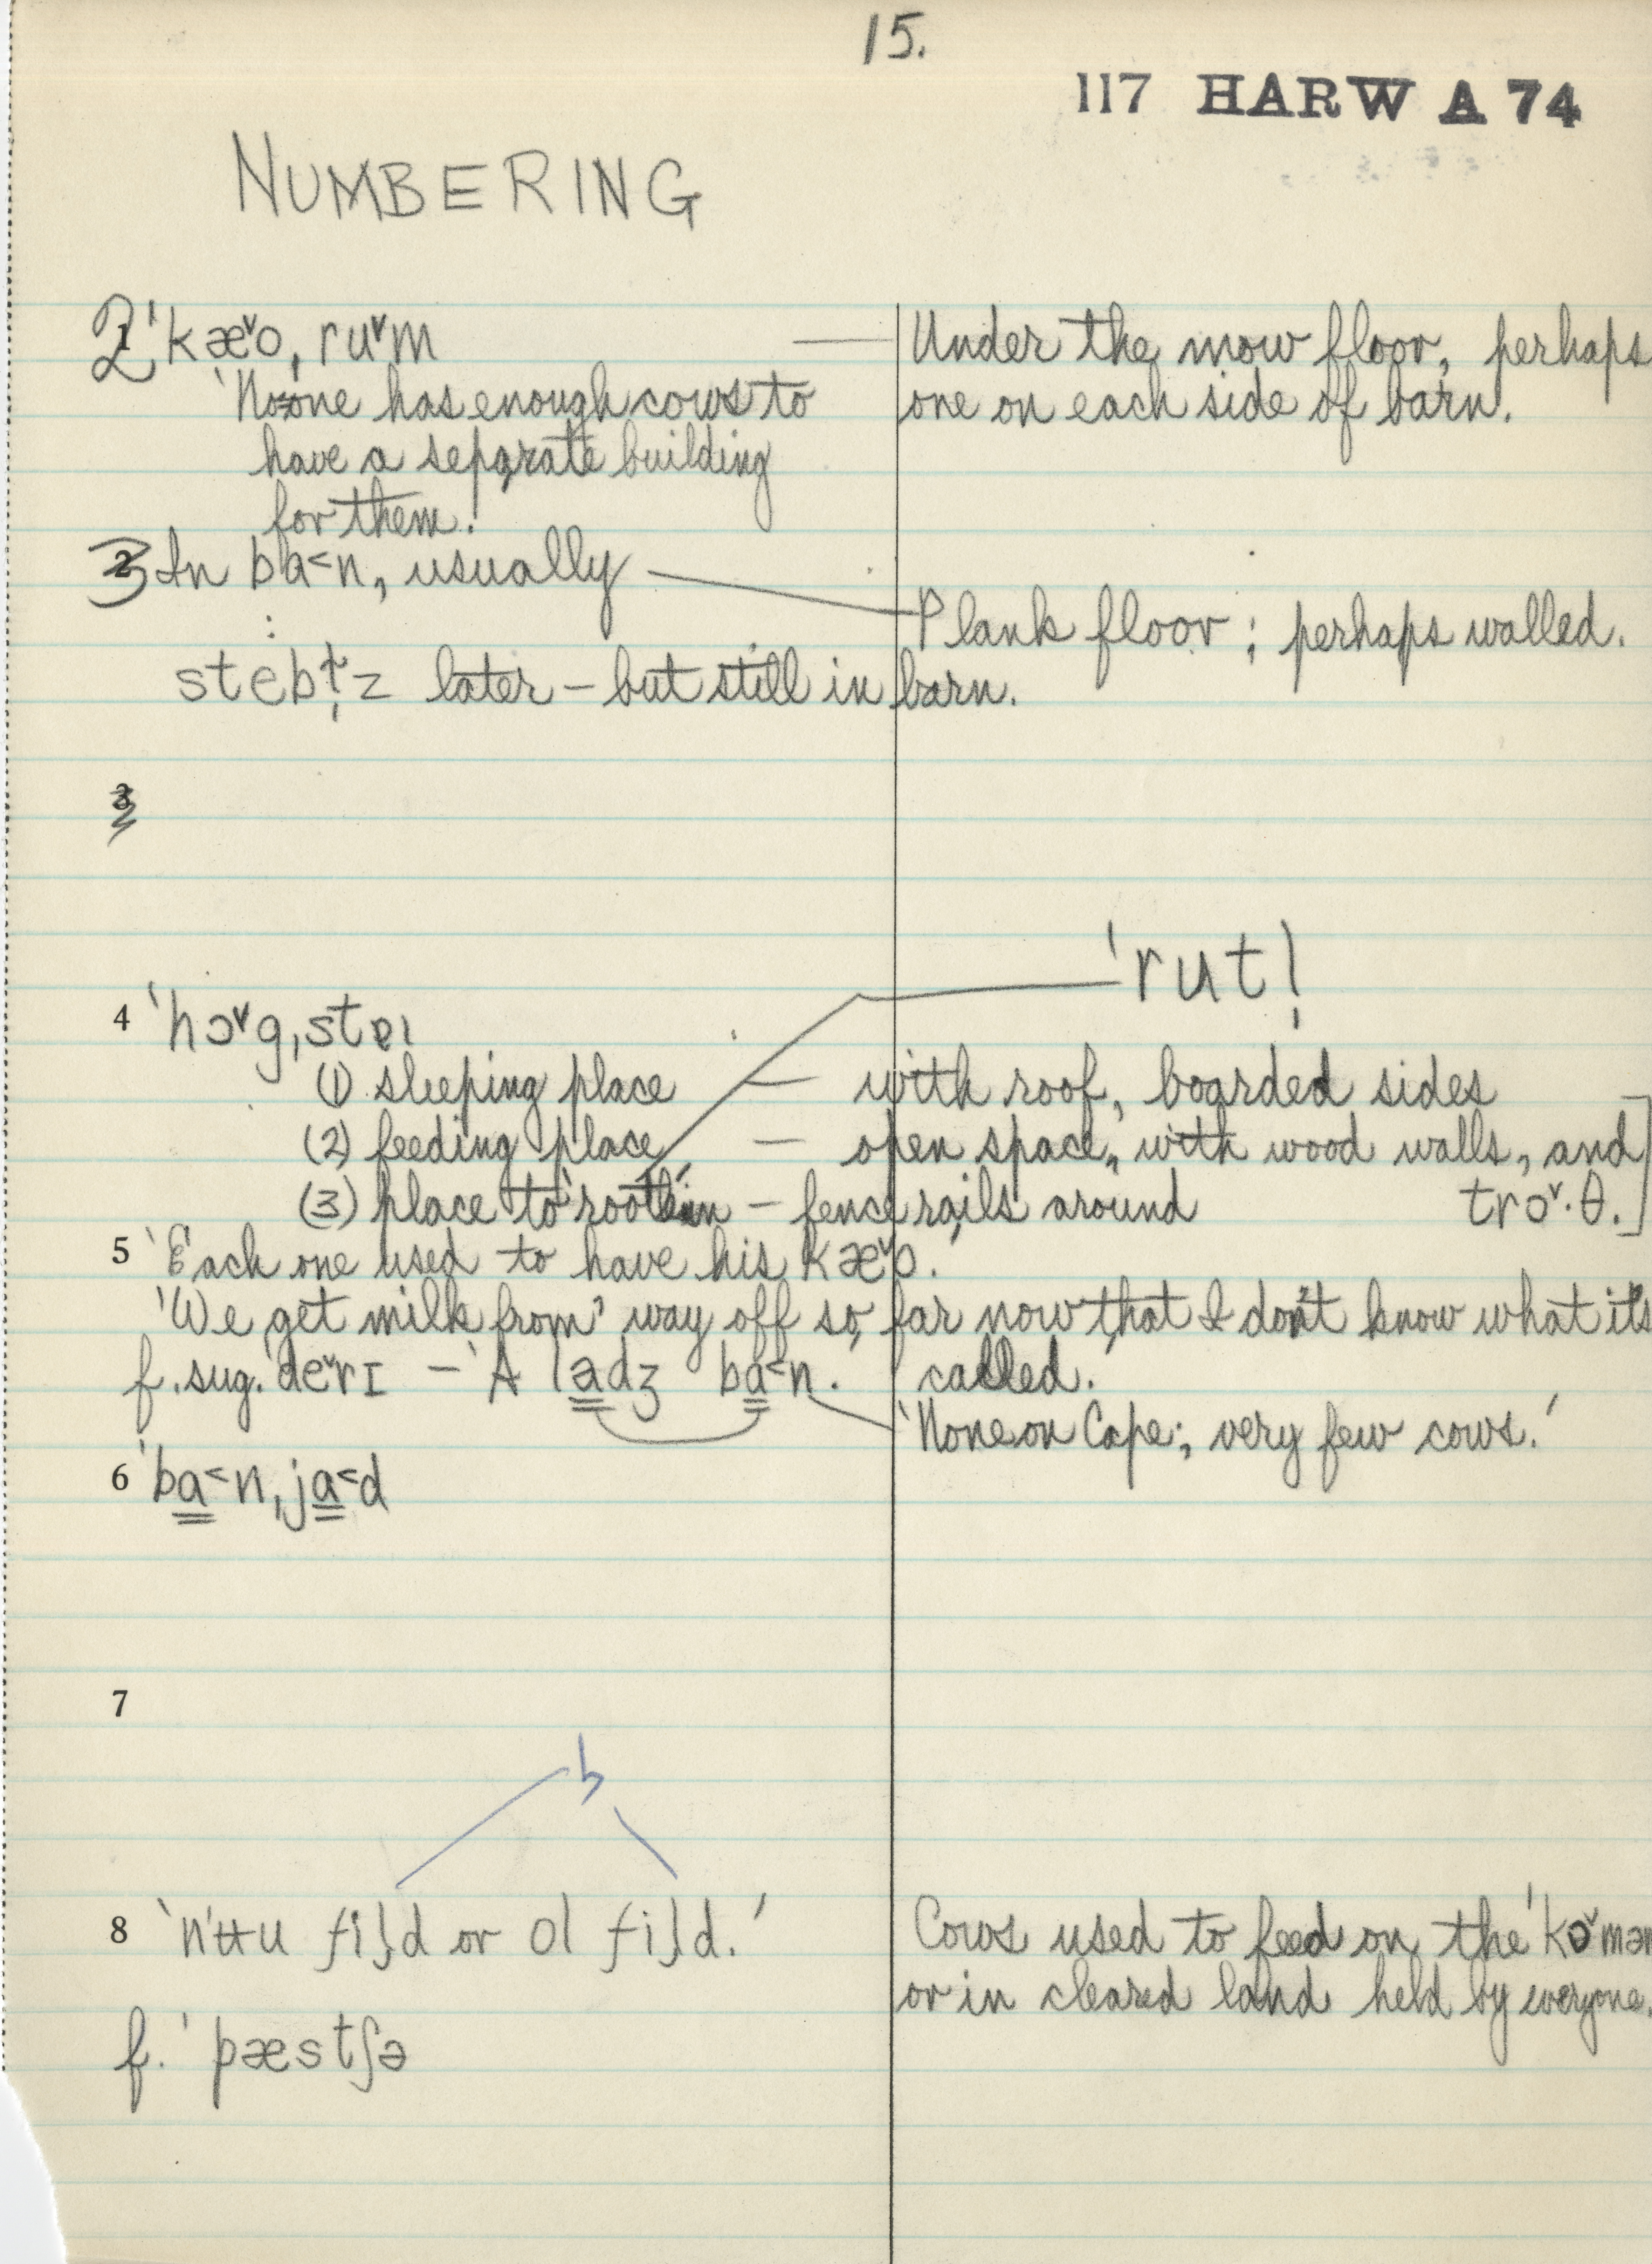 15.
117 HARW A 74
NUMBERING
2 'kæ˅o, ru˅m — Under the mow floor, perhaps
'No one has enough cows to one on each side of barn.
have a separate building
for them.'
3 In ba˂n, usually — Plank floor; perhaps walled.
later – but still in barn.
3
'rut!
4 'hɔ˅g,stɐɪ
(1) sleeping place — with roof, boarded sides
(2) feeding place — open space, with wood walls, and
(3) place to 'root' in – fence rails around trɔ˅·θ.]
5 'Each one used to have his kæ˅o.'
'We get milk from way off so far now that I don't know what it's
called.'
f. sug. 'de˅rɪ – 'A ladʒ ba˂n.
'None on Cape; very few cows.'
6 'ba˂n,ja˂d
7
8 fild or ol fild.' Cows used to feed on the
or in cleared land held by everyone.
f. 'pæstʃə